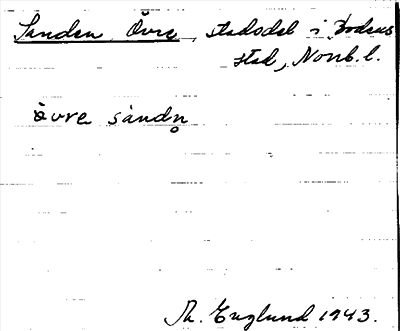 Sanden, Övre, stadsdel i Bodens
stad, Norrb. l.
övre sandn̥
Th. Englund 1943.